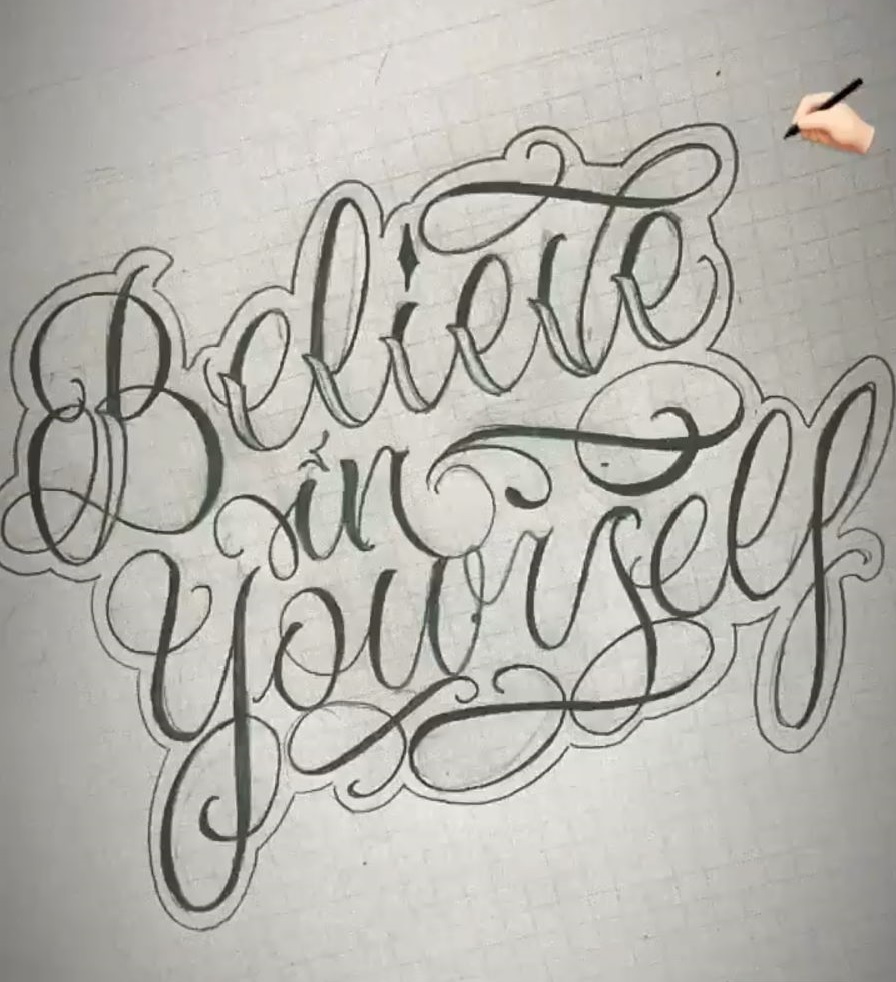 Believe
in
Yourself